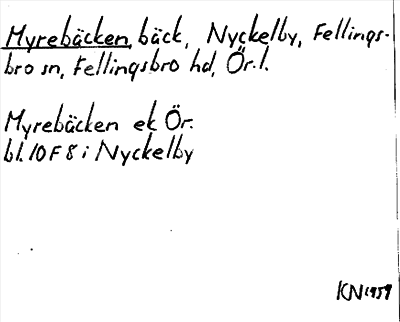 Myrebäcken, bäck, Nyckelby, Fellings-
bro sn, Fellingsbro hd, Ör. l.
Myrebäcken ek Ör.
bl. 10 F 8 i Nyckelby
KN 1959